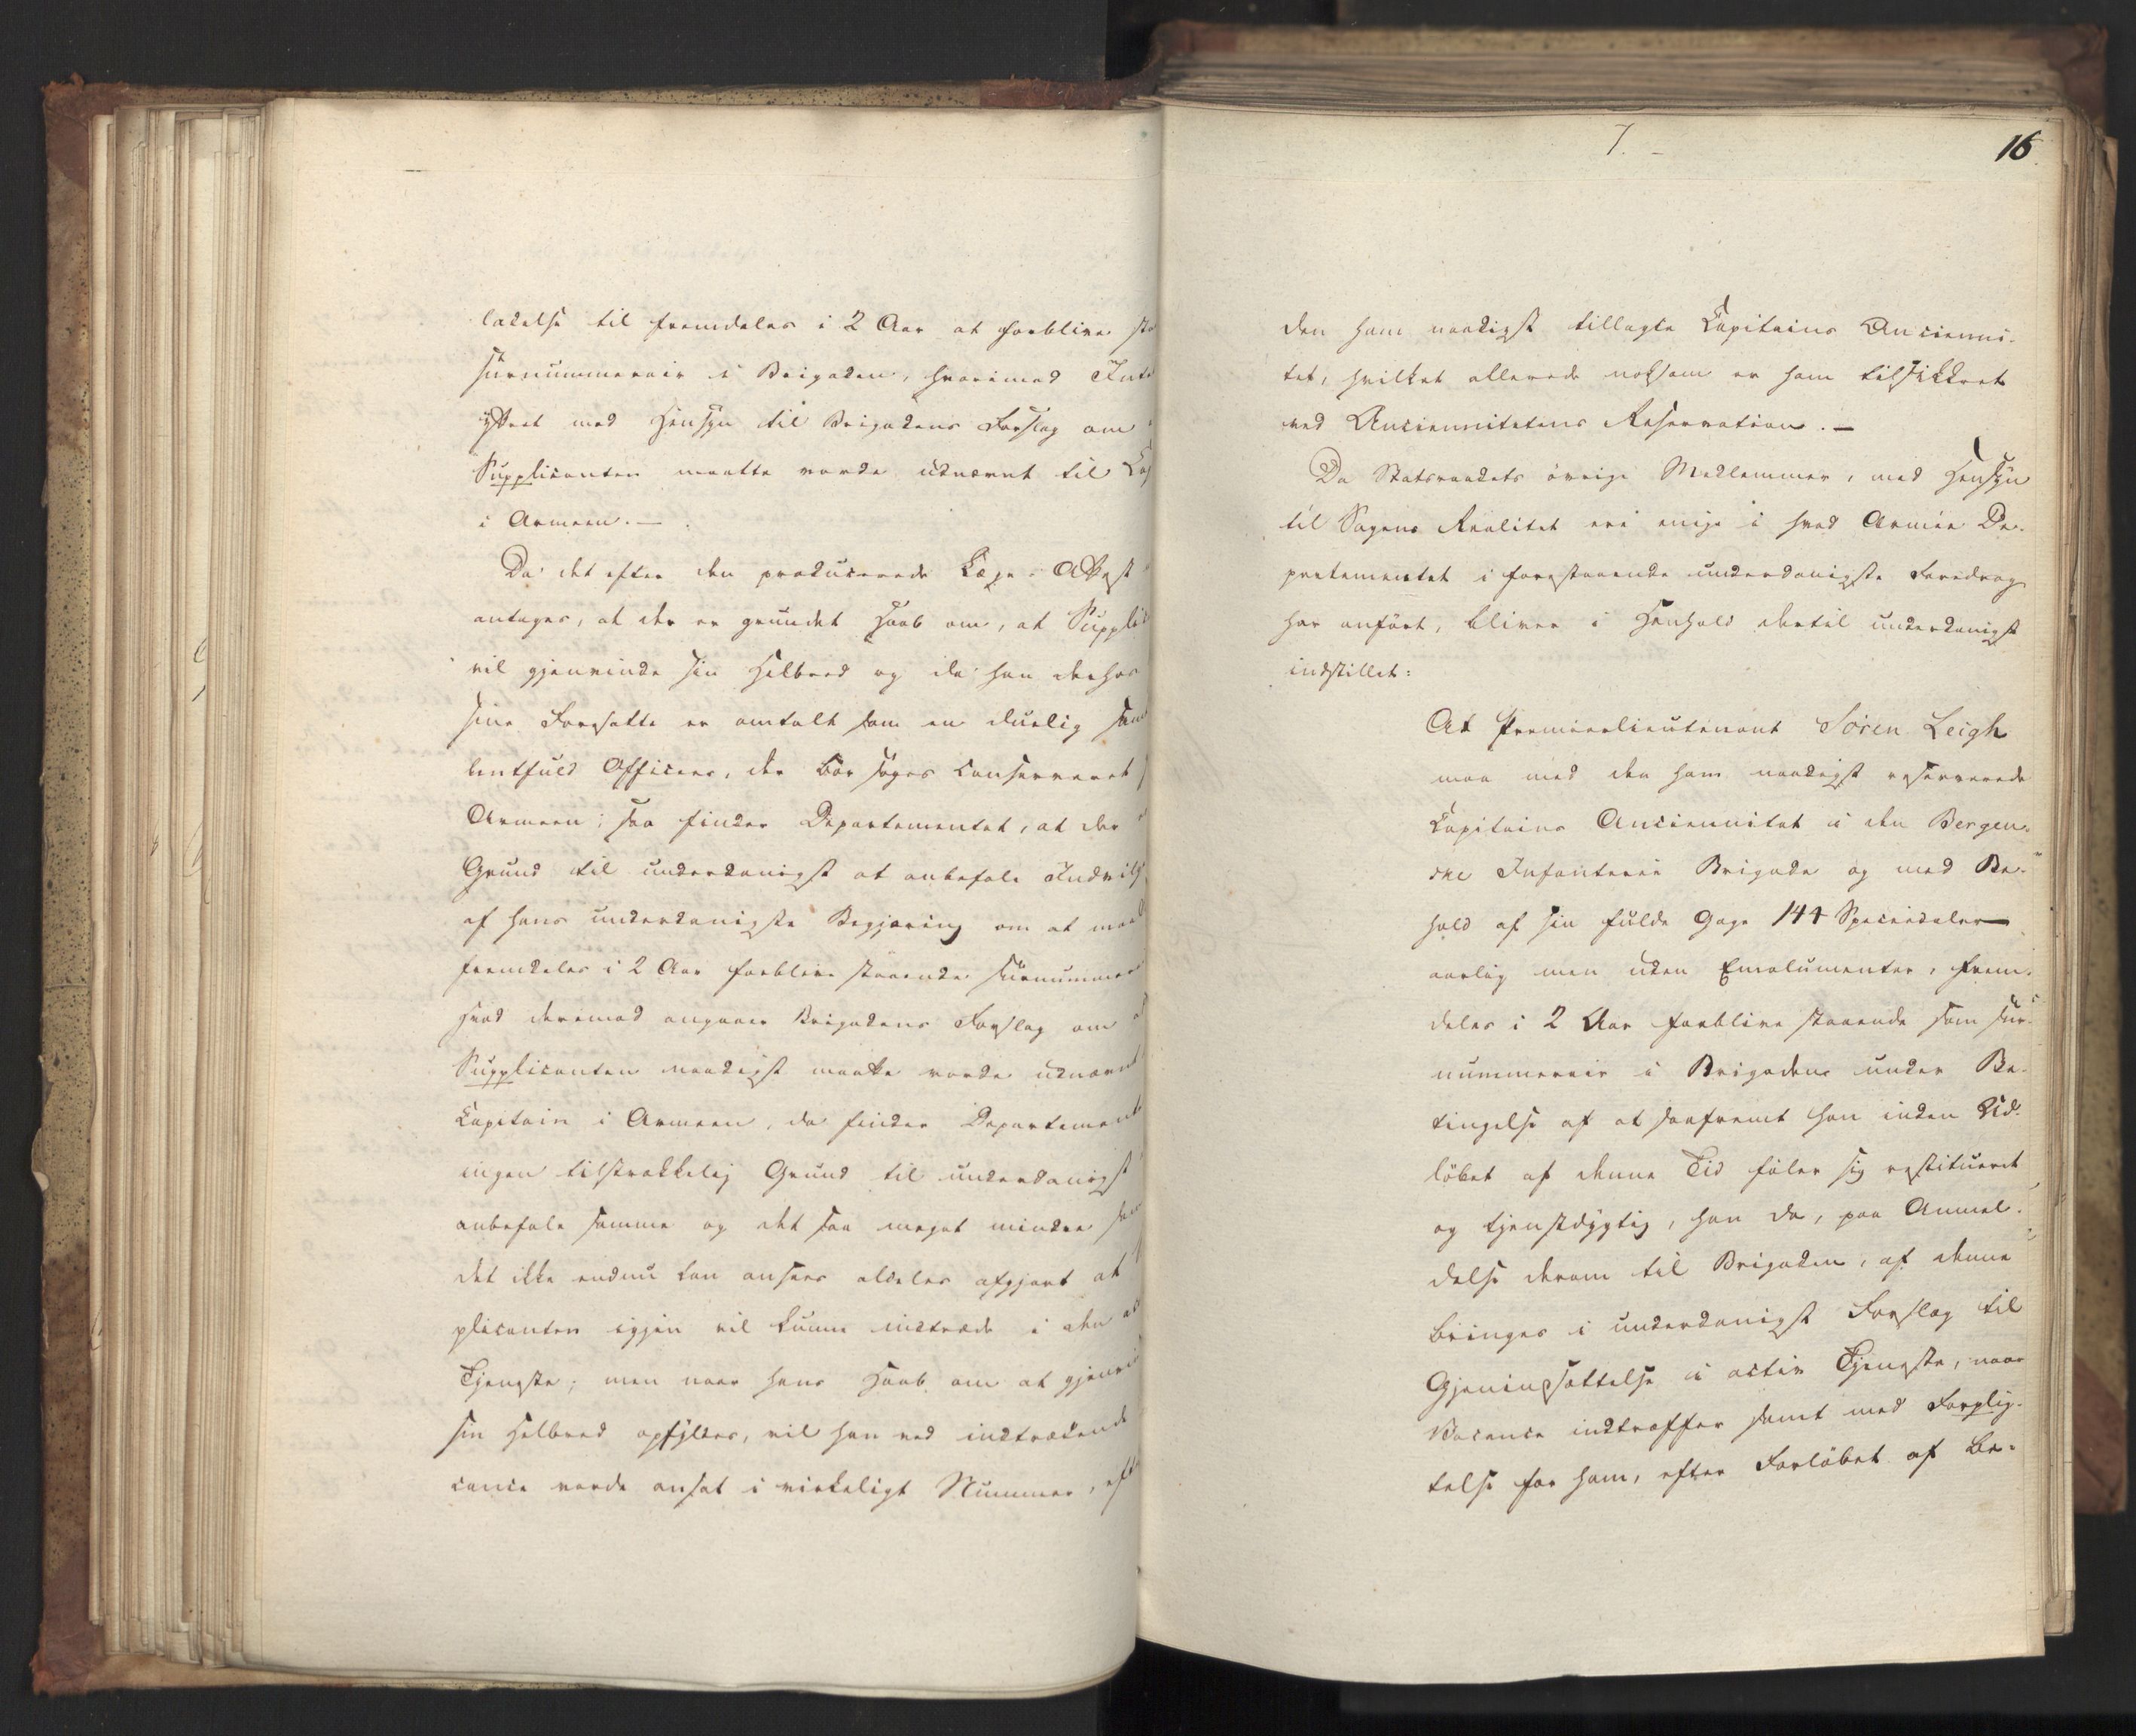 ladelse til fremdeles i 2 Aar at forblive
surnummerair i Brigaden, hvorimod
yttret med Hensyn til Brigadens Forslag om
Supplicanten maatte vorde udnævnt til
i Armeen. —
Da det efter den producerede Læge-Attest
antages, at der er grundet Haab om, at
vil gjenvinde sin Helbred og da han derhos
sine Foresatte er omtalt som en duelig
lentfuld Officeer, der bør søges conserveret
Armeen; saa finder Departementet, at der
Grund til underdanigst at anbefale
af hans underdanigste Begjæring om at
fremdeles i 2 Aar forblive staaende
Hvad derimod angaaer Brigadens Forslag om
Supplicanten naadigst maatte vorde udnævnt
Capitain i Armeen, da finder
ingen tilstrækkelig Grund til underdanigst
anbefale samme og det saa meget mindre
det ikke endnu kan ansees aldeles afgjort at
plicanten igjen vil kunne indtræde i den
Tjeneste; men naar hans Haab om at
sin Helbred opfyldes, vil han ved indtrædende
cance vorde ansat i virkeligt Nummer,
7. –
16.
den ham naadigst tillagte Capitains Ancienni-
tet, hvilket allerede noksom er ham tilsikkret
ved Anciennitetens Reservation. —
Da Statsraadets øvrige Medlemmer, med Hensyn
til Sagens Realitet ere enige i hvad Armee De-
partementet i forestaaende underdanigste Foredrag
har anført, bliver i Henhold dertil underdanigst
indstillet:
At Premierlieutenant Sören Leigh
maa med den ham naadigst reserverede
Capitains Anciennitet i den Bergen-
ske Infanterie Brigade og med Be-
hold af sin fulde Gage 144 Speciedaler
aarlig men uden Emolumenter, frem-
deles i 2 Aar forblive staaende som sur-
nummerair i Brigaden under Be-
tingelse af at saafremt han inden Ud-
løbet af denne Tid føler sig restitueret
og tjenstdygtig, han da, paa Anmel-
delse derom til Brigaden, af denne
bringes i underdanigst Forslag til
Gjenindsættelse i activ Tjeneste, naar
Vacance indtræffer samt med Forplig-
telse for ham, efter Forløbet af be-